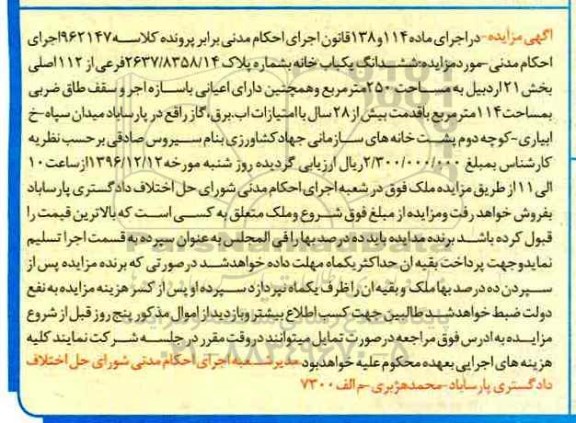 آگهی مزایده-دراجرای ماده ۱۱۴و۱۳۸قانون اجرای احکام مدنی برابر پرونده کلاسه ۹۶۲۱۴۷اجرای
احکام مدنی-موردمزایده:ششدانگ یکباب خانه بشماره پلاک ۲۶۳۷/۸۳۵۸/۱۴فرعی از ۱۱۲اصلی
بخش ۲۱اردبیل به مساحت ۲۵۰مترمربع وهمچنین دارای اعیانی باسازه اجر و سقف طاق ضربی
بمساحت۱۱۴مترمربع باقدمت بیش از۲۸سال باامتیازات اب.برق،گاز راقع در پارساباد میدان سپاه-خ
ابیاری-کوچه دوم پشت خانه های سازمانی جهادکشاورزی بنام سیروس صادقی برحسب نظریه
کارشناس بمبلغ ۲/۳۰۰/۰۰۰/۰۰۰ریال ارزیابی گردیده روز شنبه مورخه۱۳۹۶/۱۲/۱۲ازساعت ۱۰
الی۱۱از طریق مزایده ملک فوق درشعبه اجرای احکام مدنی شورای حل اختلاف دادگستری پارساباد
بفروش خواهد رفت ومزایده از مبلغ فوق شروع وملک متعلق به کسی است که بالاترین قیمت را
قبول کرده باشد.برنده مدایده باید ده درصد بهارافی المجلس به عنوان سپرده به قسمت اجرا تسلیم
نمایدوجهت پرداخت بقیه ان حداکثریکماه مهلت داده خواهدشد درصورتی که برنده مزایده پس از
سپردن ده درصد بهاملک وبقیه ان راظرف یکماه نپردازد سپرده او پس از کسر هزینه مزایده به نفع
دولت ضبط خواهدشد طالبین جهت کسب اطلاع بیشتروبازدیداز اموال مذکور پنج روز قبل از شروع
مزایده به ادرس فوق مراجعه درصورت تمایل میتوانند دروقت مقرر درجلسه شرکت نمایند کلیه
هزینه های اجرایی بعهده محکوم علیه خواهدبود مدیرشعبه اجرای احکام مدنی شورای حل اختلاف
دادگستری پارساباد-محمدهژبری-م الف ۷۳۰۰